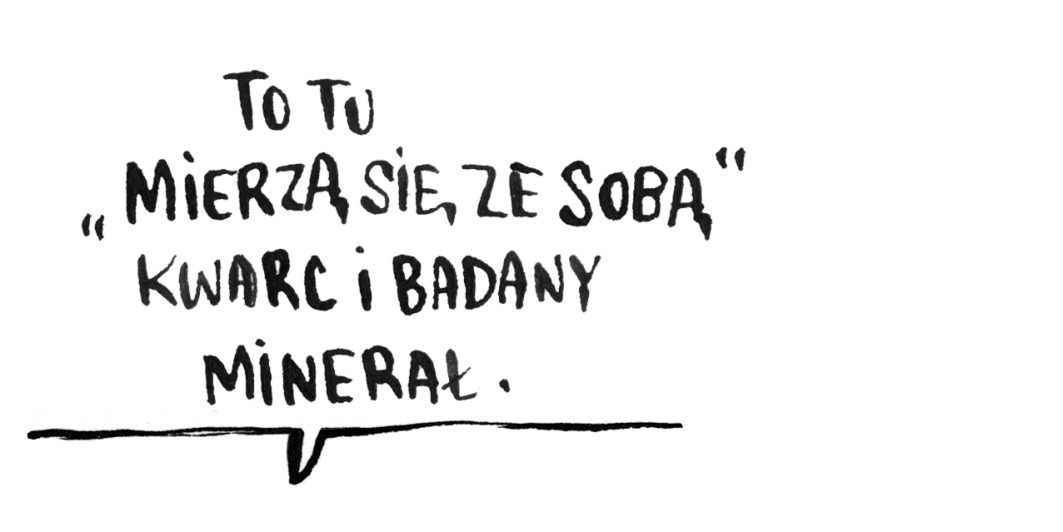 TO TU
„MIERZĄ SIĘ ZE SOBĄ“
KWARC i BADANY
MINERAŁ.